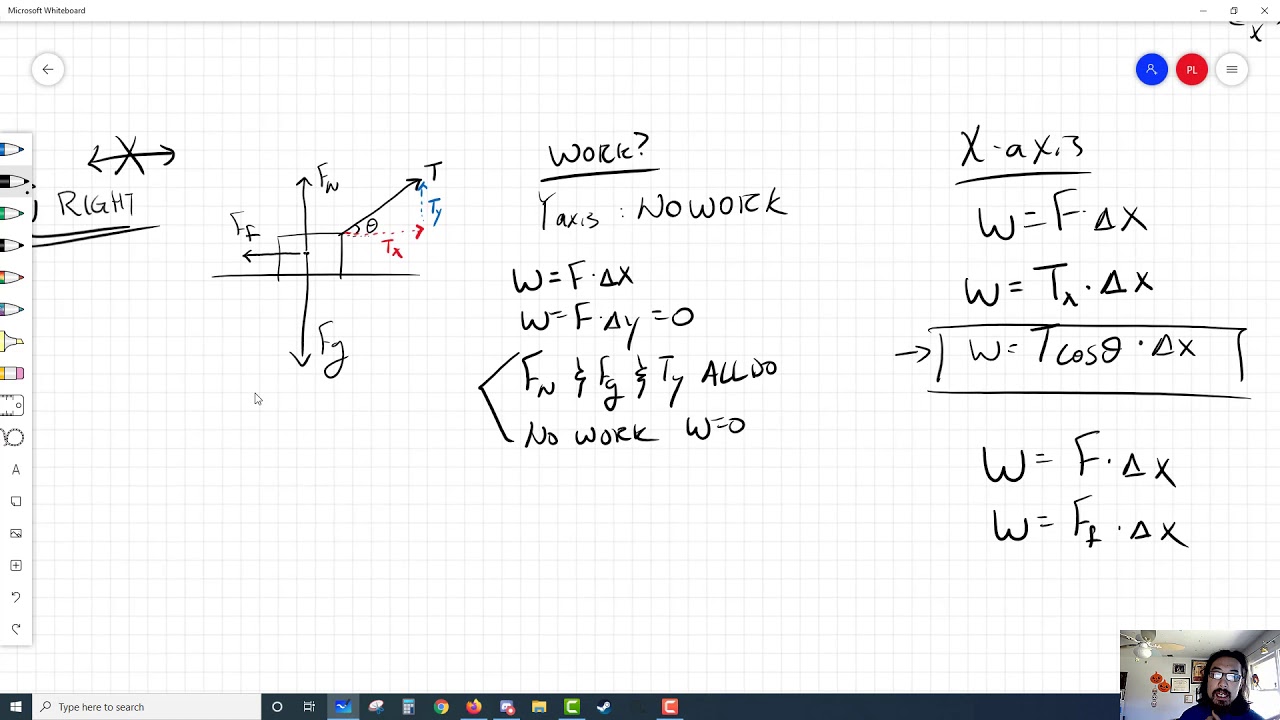 Microsoft Whiteboard
x
PL
X
RIGHT
F_N
T
T_y
θ
T_x
F_f
F_g
WORK?
Yaxis : NO WORK
W = F · Δx
W = F · Δy = 0
F_N & F_g & T_y ALL DO
NO WORK W=0
X-axis
W = F · Δx
W = T_x · Δx
→ W = T cosθ · Δx
W = F · Δx
W = F_f · Δx
A
Type here to search